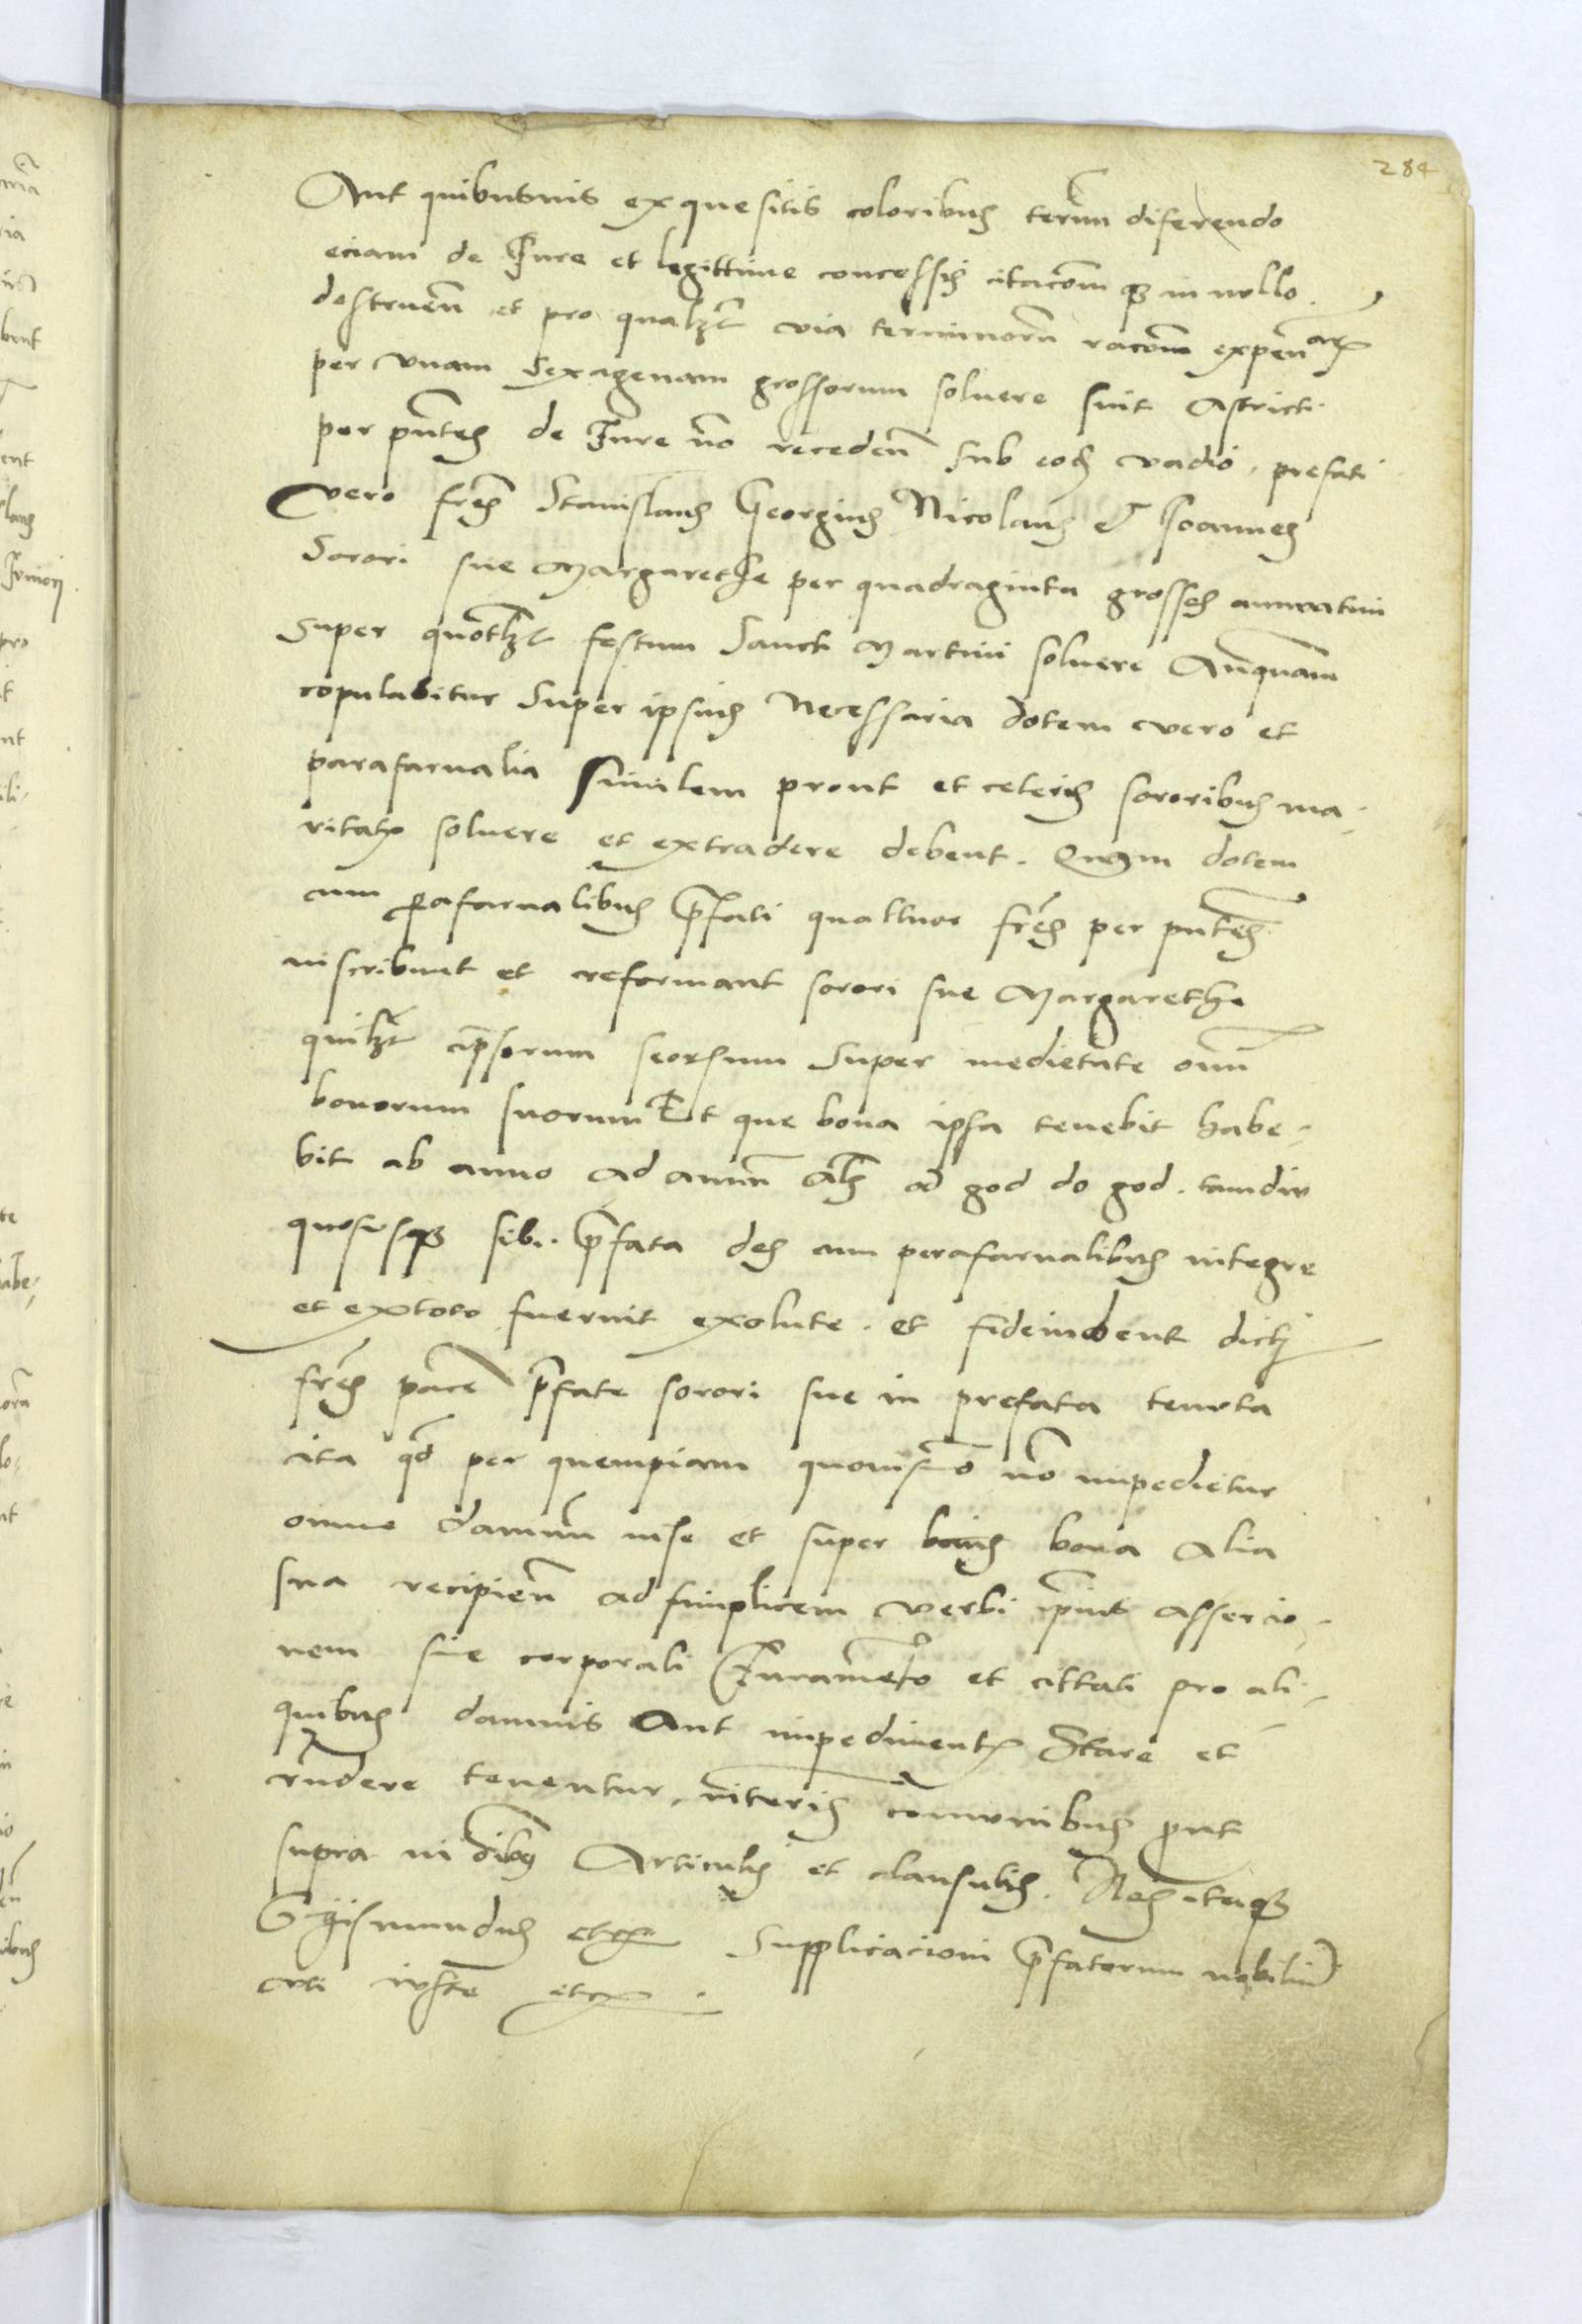 284
Aut quibusuis exquesitis coloribus termn diferendo
eciam de Jure et legittime concessis citacom q3 in nullo.
destruen et pro qualzt via terminorn racom expenarx
per vnam sexagenam grossorum soluere sint astricti
per pntes de Jure no recedenn sub eod vadio. prefati
vero fres Stanislaus Georgius Nicolaus et Joannes
Sorori sue Margarethe per quadraginta grosses annuatim
Super quotlzt festum Sancti Martini soluere Anqnam
copulabitur Super ipsius Necessaria dotem vero et
parafarnalia similem prout et ceteris sororibus ma-
ritatx soluere et extradere debent. Quam dotem
cum parafarnalibus pfati quattuor fres per pntes
inscribunt et reformant sorori sue Margarethe
quilzt ipsorum seorsum Super medietate oim
bonorum suorum Et que bona ipsa tenebit habe-
bit ab anno ad annm als od god do god. tamdiu
quousq3 sibi pfata dos cum perafarnalibus integre
et extoto fuerint exolute. et fideiubent dicti
fres pace pfate sorori sue in prefata tenuta
ita qd per quempiam quouismo no impedietur
omne damnm inse et super bona alia
sua recipien ad simplicem verbi ipius assercio-
nem sine corporali Juramento et cittati pro ali-
quibus damnis Aut impedimentx Stare et
rndere tenentur. in ceteris comunibus put
supra in oibus Articulis et clausulis. Nos itaq3
Sigismundus etcx Supplicacioni pfatorum nobilium
vti iuste etcx.